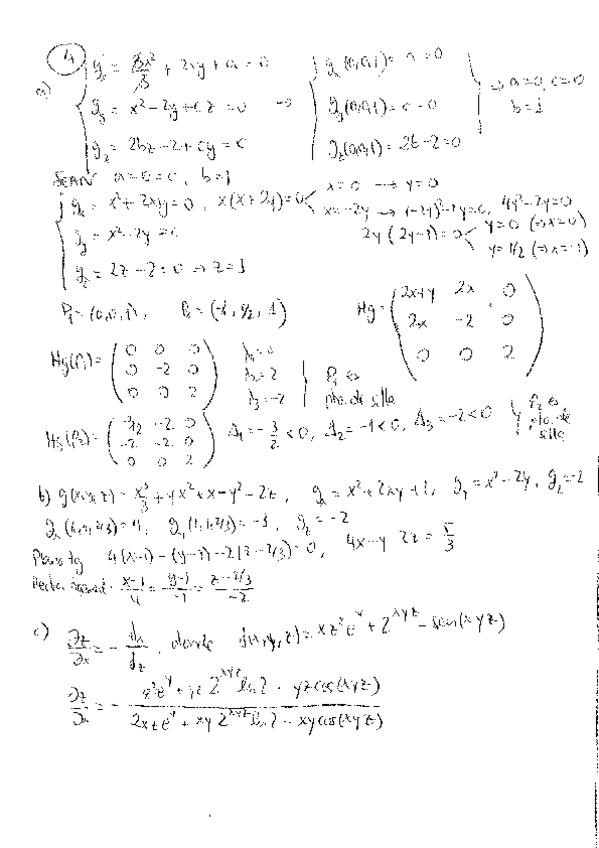 4
a) g_x = 3x²/3 + 2xy + a = 0
g_y = x² - 2y + cz = 0
g_z = 2bz - 2 + cy = 0
→
g_x(0,0,1) = a = 0
g_y(0,0,1) = c = 0
g_z(0,0,1) = 2b - 2 = 0
⇒ a = 0, c = 0
b = 1
SEAN a = 0 = c, b = 1
g_x = x² + 2xy = 0, x(x + 2y) = 0
x = 0 → y = 0
x = -2y → (-2y)² - 2y = 0, 4y² - 2y = 0
2y(2y - 1) = 0
y = 0 (⇒ x = 0)
y = 1/2 (⇒ x = -1)
g_y = x² - 2y = 0
g_z = 2z - 2 = 0 ⇒ z = 1
P₁ = (0,0,1), P₂ = (-1, 1/2, 1)
Hg = ( 2x+y 2x 0
2x -2 0
0 0 2 )
Hg(P₁) = ( 0 0 0
0 -2 0
0 0 2 )
= 0
= 2
λ₃ = -2
P₁ es
pto. de silla
Hg(P₂) = ( -2 0
-2 -2 0
0 0 2 ) Δ₁ = -3/2 < 0, Δ₂ = -1 < 0, Δ₃ = -2 < 0
P₂ es
pto. de
silla
b) g(x,y,z) = x³/3 + yx² + x - y² - 2z, g_x = x² + 2xy + 1, g_y = x² - 2y, g_z = -2
g_x(1,1,2/3) = 4, g_y(1,1,2/3) = -1, g_z = -2
Plano tg 4(x-1) - (y-1) - 2(z - 2/3) = 0, 4x - y 2z = 5/3
Recta normal: (x-1)/4 = (y-1)/-1 = (z-2/3)/-2
c) ∂z/∂x = - f_x/f_z, donde f(x,y,z) = xz²e^y + 2^{xyz} - sen(xyz)
∂z/∂x = - (z²e^y + yz 2^{xyz} ln2 - yz cos(xyz)) / (2xze^y + xy 2^{xyz} ln2 - xy cos(xyz))